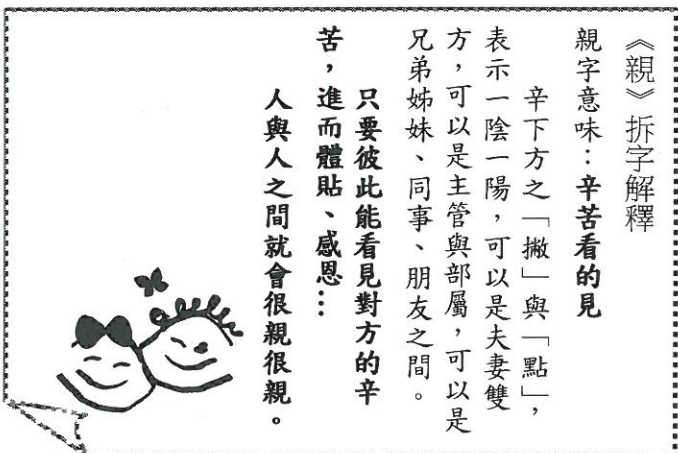 《親》拆字解釋
親字意味：辛苦看的見
辛下方之「撇」與「點」，
表示一陰一陽，可以是夫妻雙
方，可以是主管與部屬，可以是
兄弟姊妹、同事、朋友之間。
只要彼此能看見對方的辛
苦，進而體貼、感恩…
人與人之間就會很親很親。